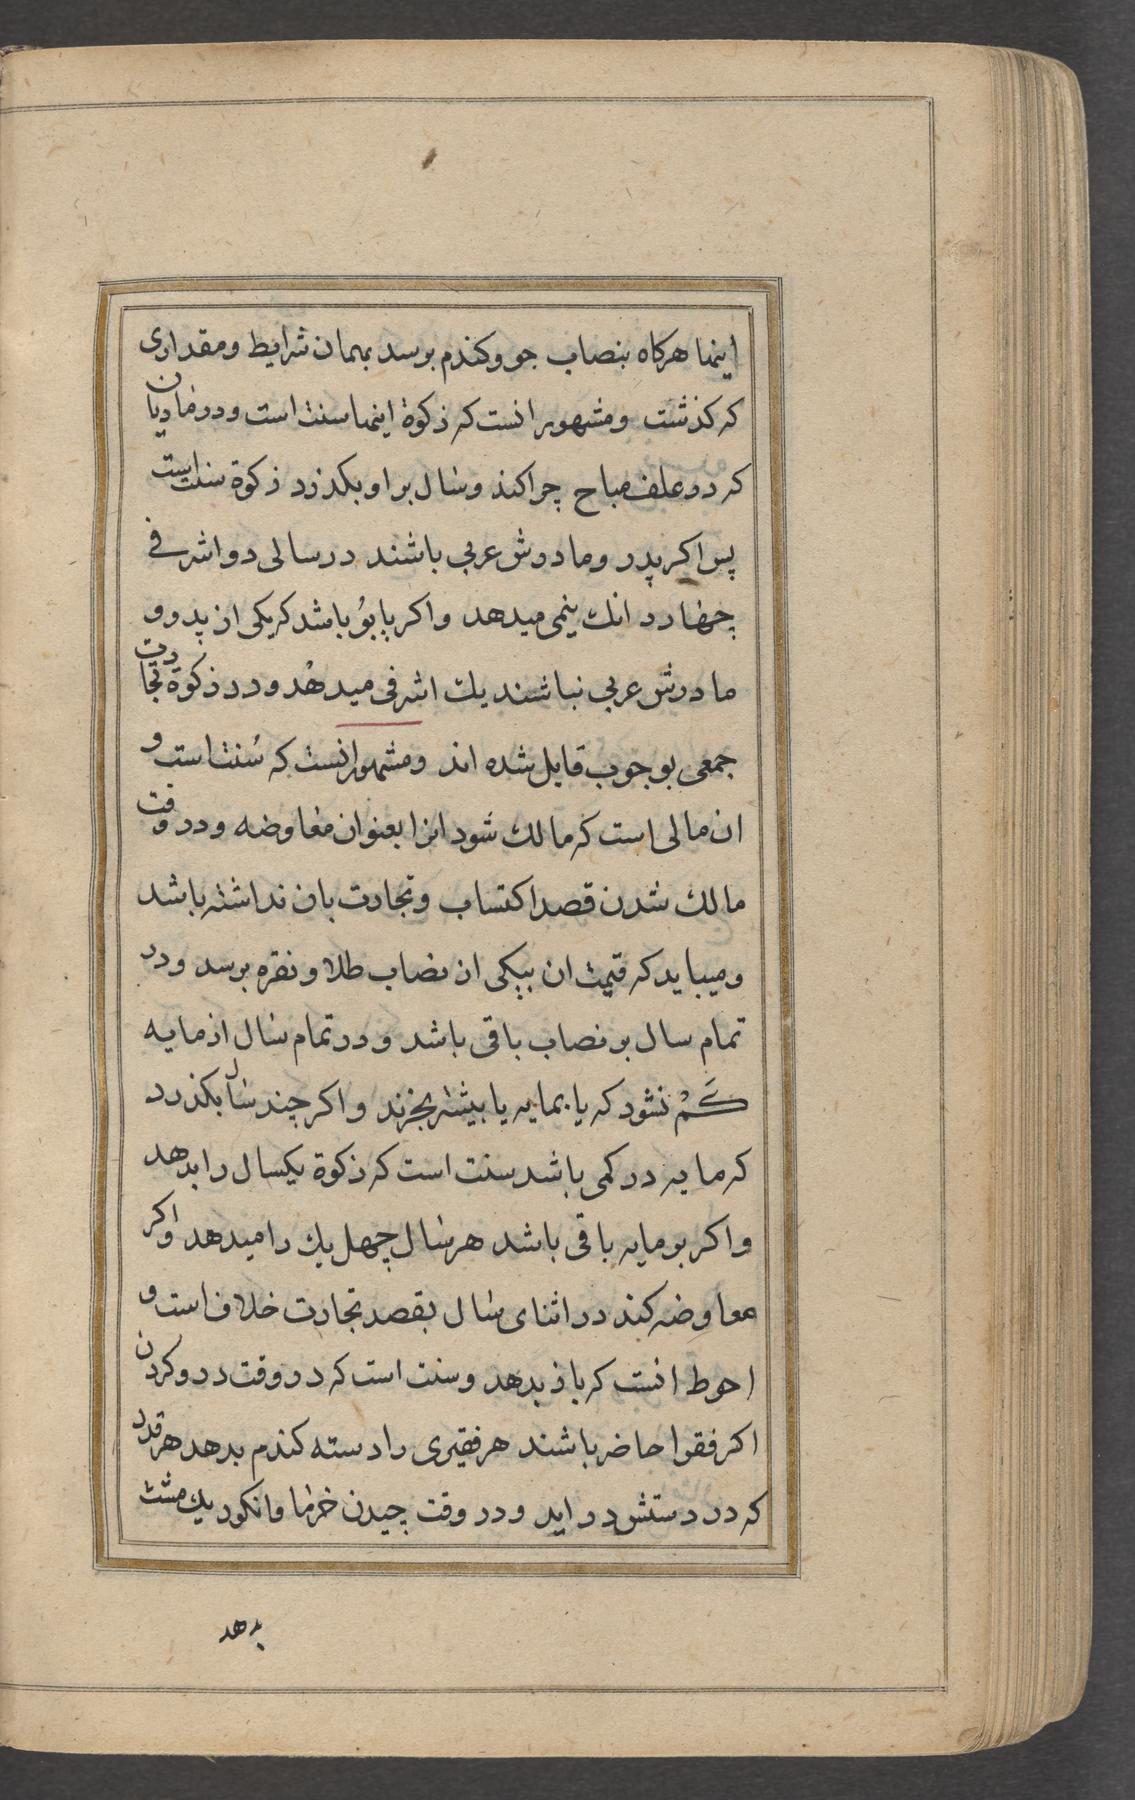 اینها هرکاه بنصاب جو وکندم برسد بهمان شرایط ومقداری
که کذشت ومشهور انست که زکوة اینها سنت است ودر مادیان
که در علف مباح چرا کند وسال بر او بکذرد زکوة سنت است
پس اکر پدر ومادرش عربی باشند در سالی دو اشرفی
چهار دانك ینمی میدهد واکر یابو باشد که یکی از پدر و
مادرش عربی نباشند یك اشرفی میدهد ودر زکوة تجارت
جمعی بوجوب قایل شده اند ومشهور انست که سُنت است و
ان مالی است که مالك شود انرا بعنوان معاوضه ودر وقت
مالك شدن قصد اکتساب وتجارت بان نداشته باشد
ومیباید که قیمت ان بیکی از نصاب طلا ونقره برسد ودر
تمام سال بر نصاب باقی باشد ودر تمام سال از مایه
کَمْ نشود که یا بمایه یا بیشتر بخرند واکر چند سال بکذرد
که مایه در کمی باشد سنت است که زکوة یکسال را بدهد
واکر بر مایه باقی باشد هر سال چهل یك را میدهد واکر
معاوضه کند در اثنای سال بقصد تجارت خلاف است و
احوط انست که باز بدهد وسنت است که در وقت درو کردن
اکر فقرا حاضر باشند هر فقیری را دسته کندم بدهد هر قدر
که در دستش در اید ودر وقت چیدن خرما وانکور یك مشت
بدهد